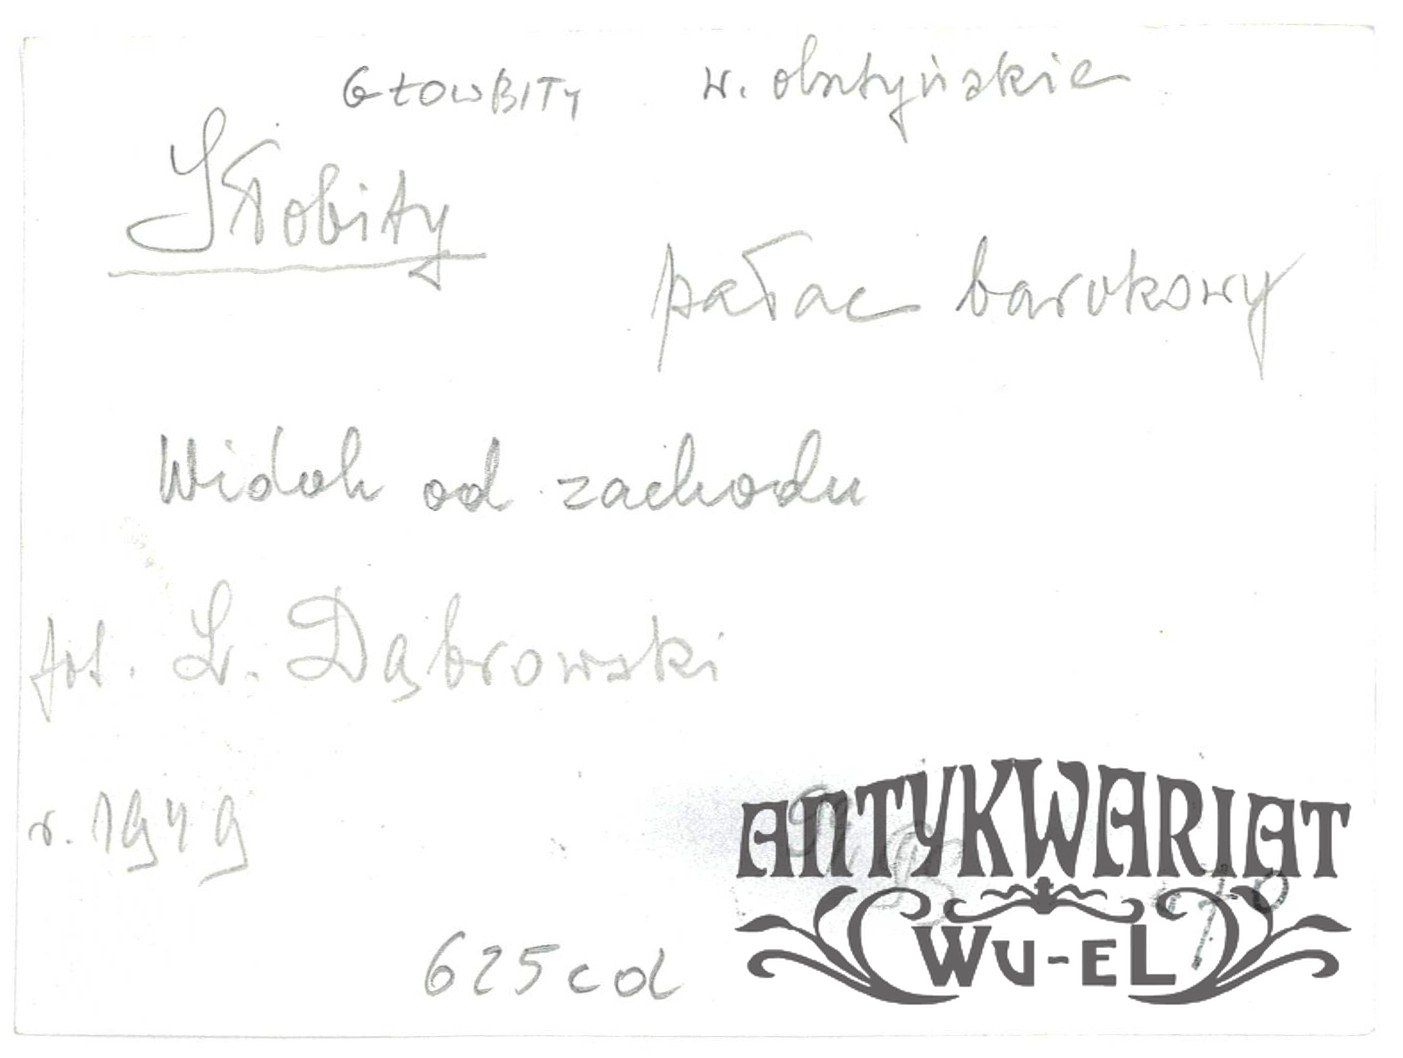 GŁOWBITY w. olsztyńskie
Słobity
pałac barokowy
Widok od zachodu
fot. L. Dąbrowski
r. 1949
625 cd
ANTYKWARIAT
WU-EL